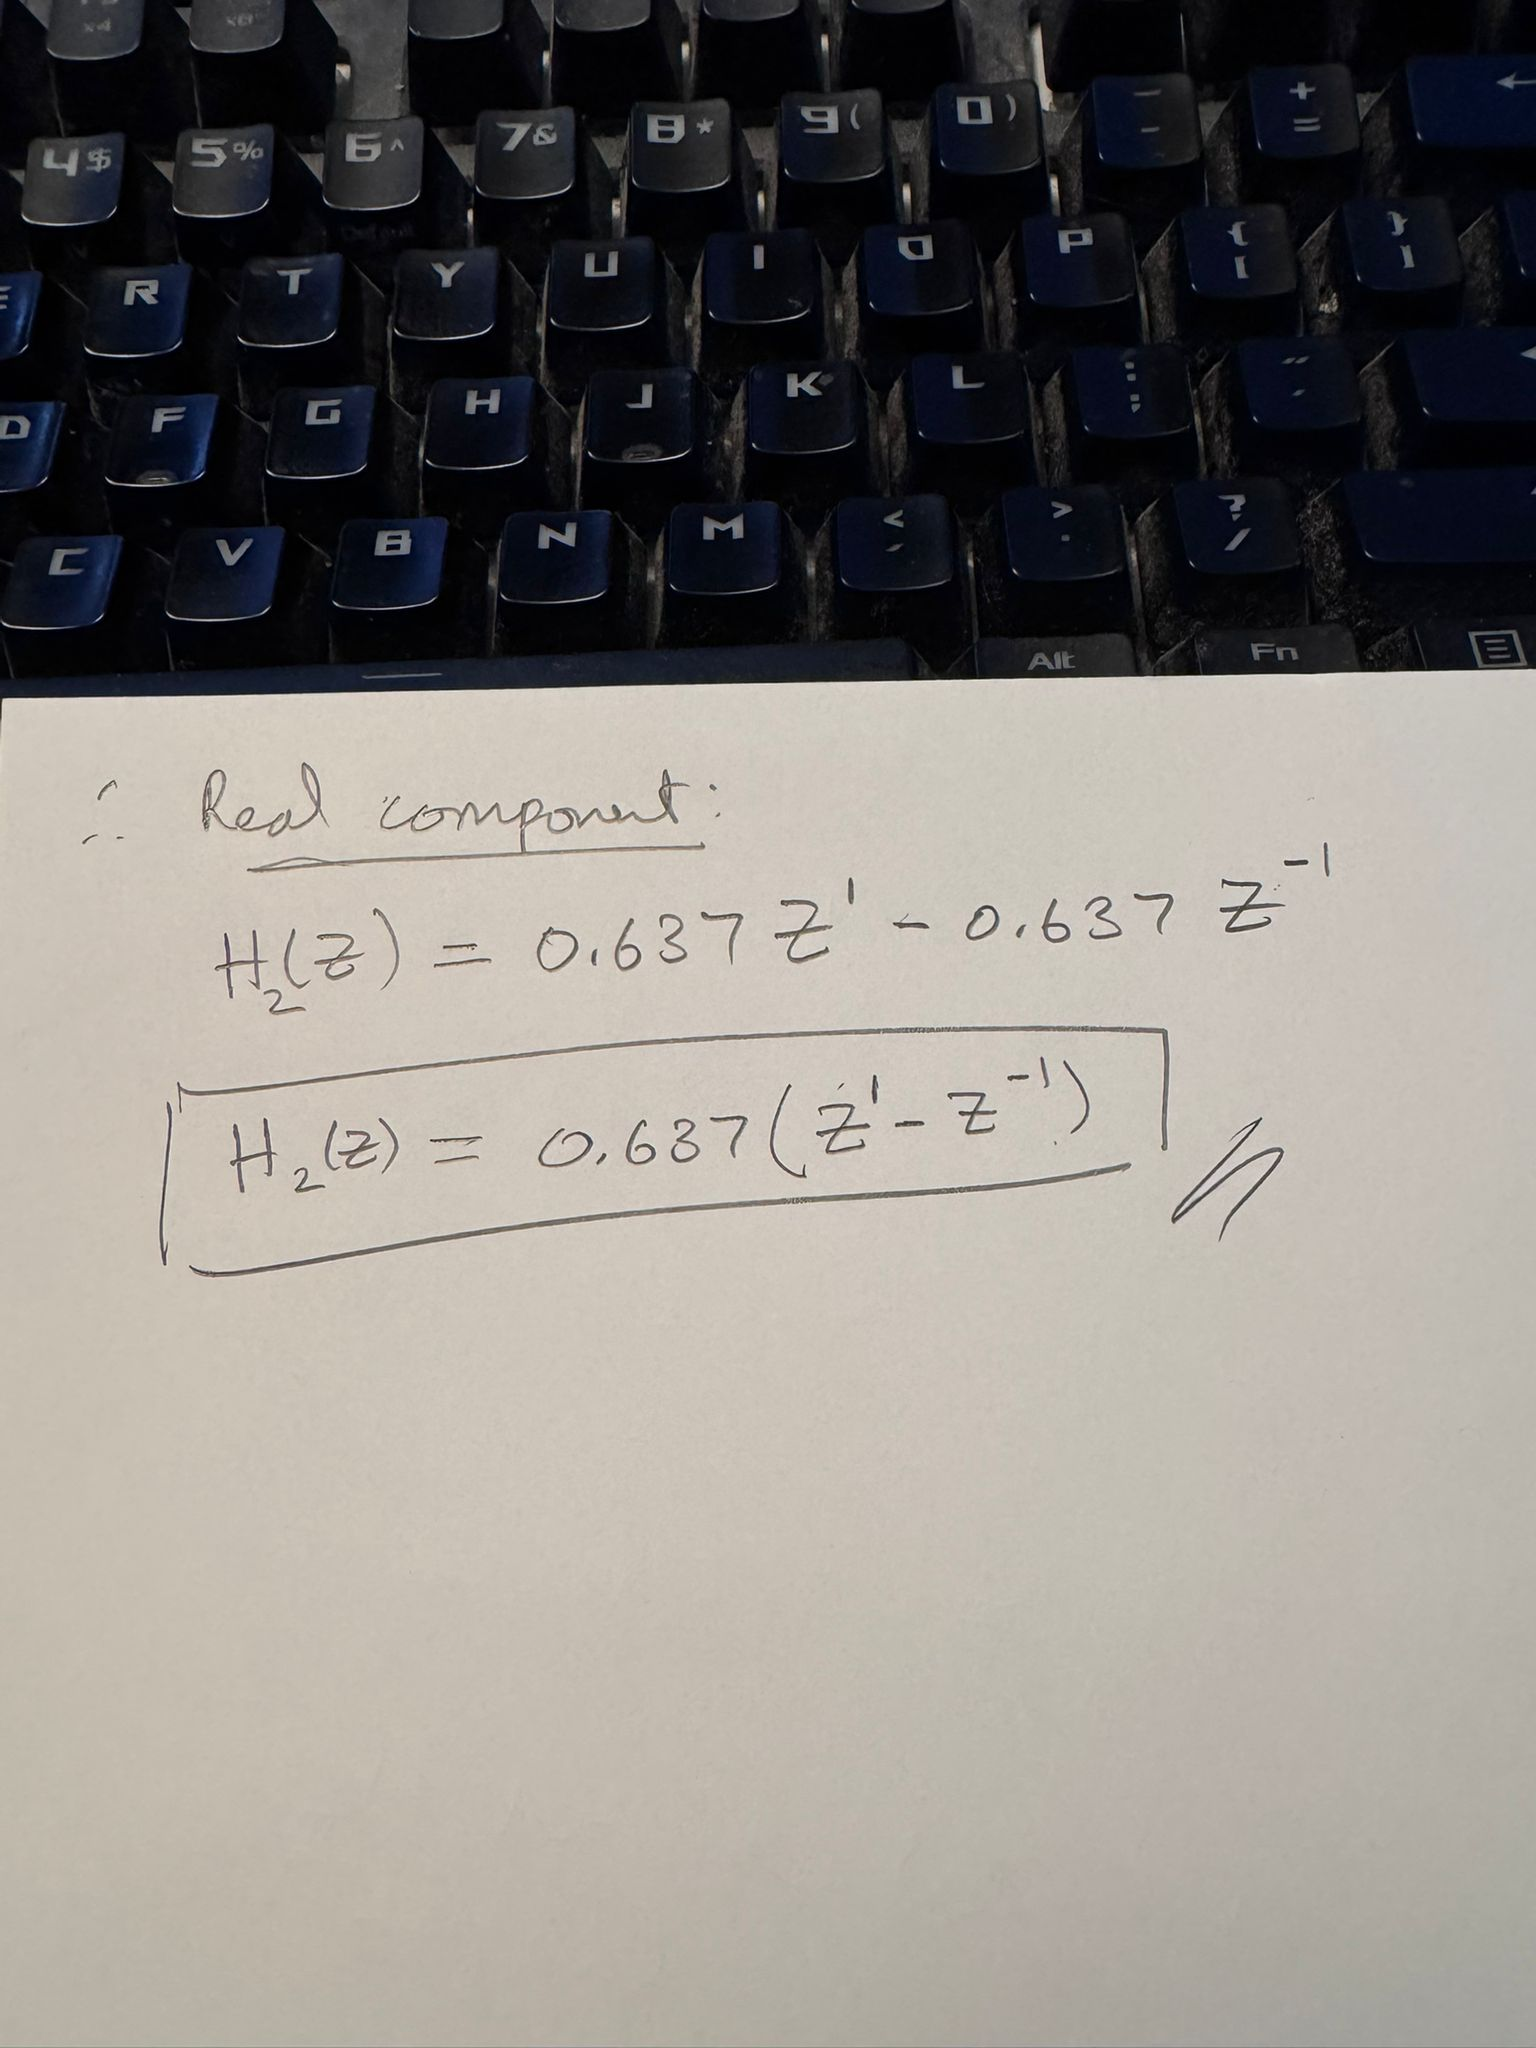 4$ 5% 6^ 7& 8* 9( 0) - + =
R T Y U I O P { [ } ]
D F G H J K L : ; " '
C V B N M < , > . ? /
Alt Fn
∴ Real component:
H₂(Z) = 0.637 Z¹ - 0.637 Z⁻¹
H₂(Z) = 0.637(Z¹ - Z⁻¹)